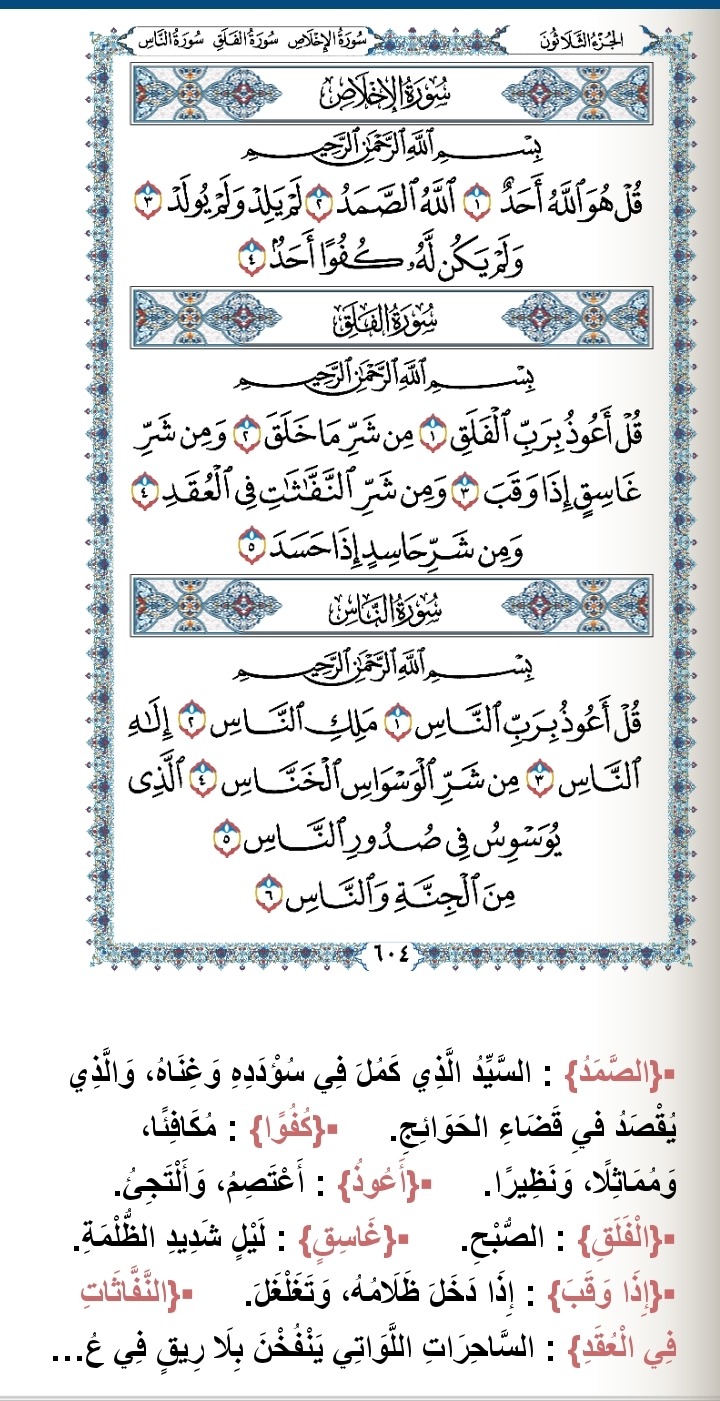 الجزء الثلاثون
سورة الإخلاص سورة الفلق سورة الناس
سُورَةُ الإِخْلَاصِ
بِسْمِ ٱللَّهِ ٱلرَّحْمَٰنِ ٱلرَّحِيمِ
قُلْ هُوَ ٱللَّهُ أَحَدٌ ١ ٱللَّهُ ٱلصَّمَدُ ٢ لَمْ يَلِدْ وَلَمْ يُولَدْ ٣
وَلَمْ يَكُن لَّهُۥ كُفُوًا أَحَدٌۢ ٤
سُورَةُ الفَلَقِ
بِسْمِ ٱللَّهِ ٱلرَّحْمَٰنِ ٱلرَّحِيمِ
قُلْ أَعُوذُ بِرَبِّ ٱلْفَلَقِ ١ مِن شَرِّ مَا خَلَقَ ٢ وَمِن شَرِّ
غَاسِقٍ إِذَا وَقَبَ ٣ وَمِن شَرِّ ٱلنَّفَّٰثَٰتِ فِى ٱلْعُقَدِ ٤
وَمِن شَرِّ حَاسِدٍ إِذَا حَسَدَ ٥
سُورَةُ النَّاسِ
بِسْمِ ٱللَّهِ ٱلرَّحْمَٰنِ ٱلرَّحِيمِ
قُلْ أَعُوذُ بِرَبِّ ٱلنَّاسِ ١ مَلِكِ ٱلنَّاسِ ٢ إِلَٰهِ
ٱلنَّاسِ ٣ مِن شَرِّ ٱلْوَسْوَاسِ ٱلْخَنَّاسِ ٤ ٱلَّذِى
يُوَسْوِسُ فِى صُدُورِ ٱلنَّاسِ ٥
مِنَ ٱلْجِنَّةِ وَٱلنَّاسِ ٦
٦٠٤
▪{الصَّمَدُ} : السَّيِّدُ الَّذِي كَمُلَ فِي سُؤْدَدِهِ وَغِنَاهُ، وَالَّذِي
يُقْصَدُ في قَضَاءِ الحَوَائِجِ. ▪{كُفُوًا} : مُكَافِئًا،
وَمُمَاثِلًا، وَنَظِيرًا. ▪{أَعُوذُ} : أَعْتَصِمُ، وَأَلْتَجِئُ.
▪{الْفَلَقِ} : الصُّبْحِ. ▪{غَاسِقٍ} : لَيْلٍ شَدِيدِ الظُّلْمَةِ.
▪{إِذَا وَقَبَ} : إِذَا دَخَلَ ظَلَامُهُ، وَتَغَلْغَلَ. ▪{النَّفَّاثَاتِ
فِي الْعُقَدِ} : السَّاحِرَاتِ اللَّوَاتِي يَنْفُخْنَ بِلَا رِيقٍ فِي عُ...